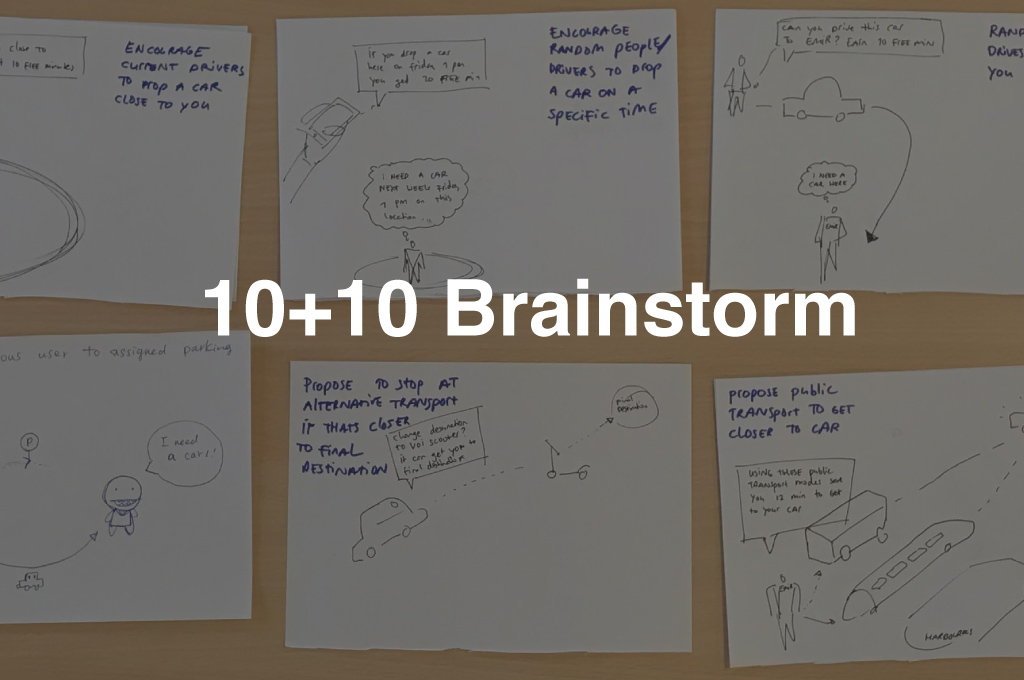 close to
10 FREE minutes
ENCOURAGE
CURRENT DRIVERS
TO DROP A CAR
CLOSE TO YOU
If you drop a car
here on friday 7 pm
you get 20 FREE min
ENCOURAGE
RANDOM PEOPLE/
DRIVERS TO DROP
A CAR ON A
SPECIFIC TIME
I NEED A CAR
NEXT WEEK Friday
7 pm on this
location...
can you drive this car
TO EMER? EARN 10 FREE min
DRIVES
YOU
I NEED A
CAR HERE
10+10 Brainstorm
ous user to assigned parking
P
I need
a car!
PROPOSE TO STOP AT
ALTERNATIVE TRANSPORT
IF THATS CLOSER
TO FINAL
DESTINATION
Change destination
to VOI scooter?
it can get you to
final destination
Final
Destination
PROPOSE PUBLIC
TRANSPORT TO GET
CLOSER TO CAR
USING THESE public
Transport modes
you 12 min to get
to your CAR